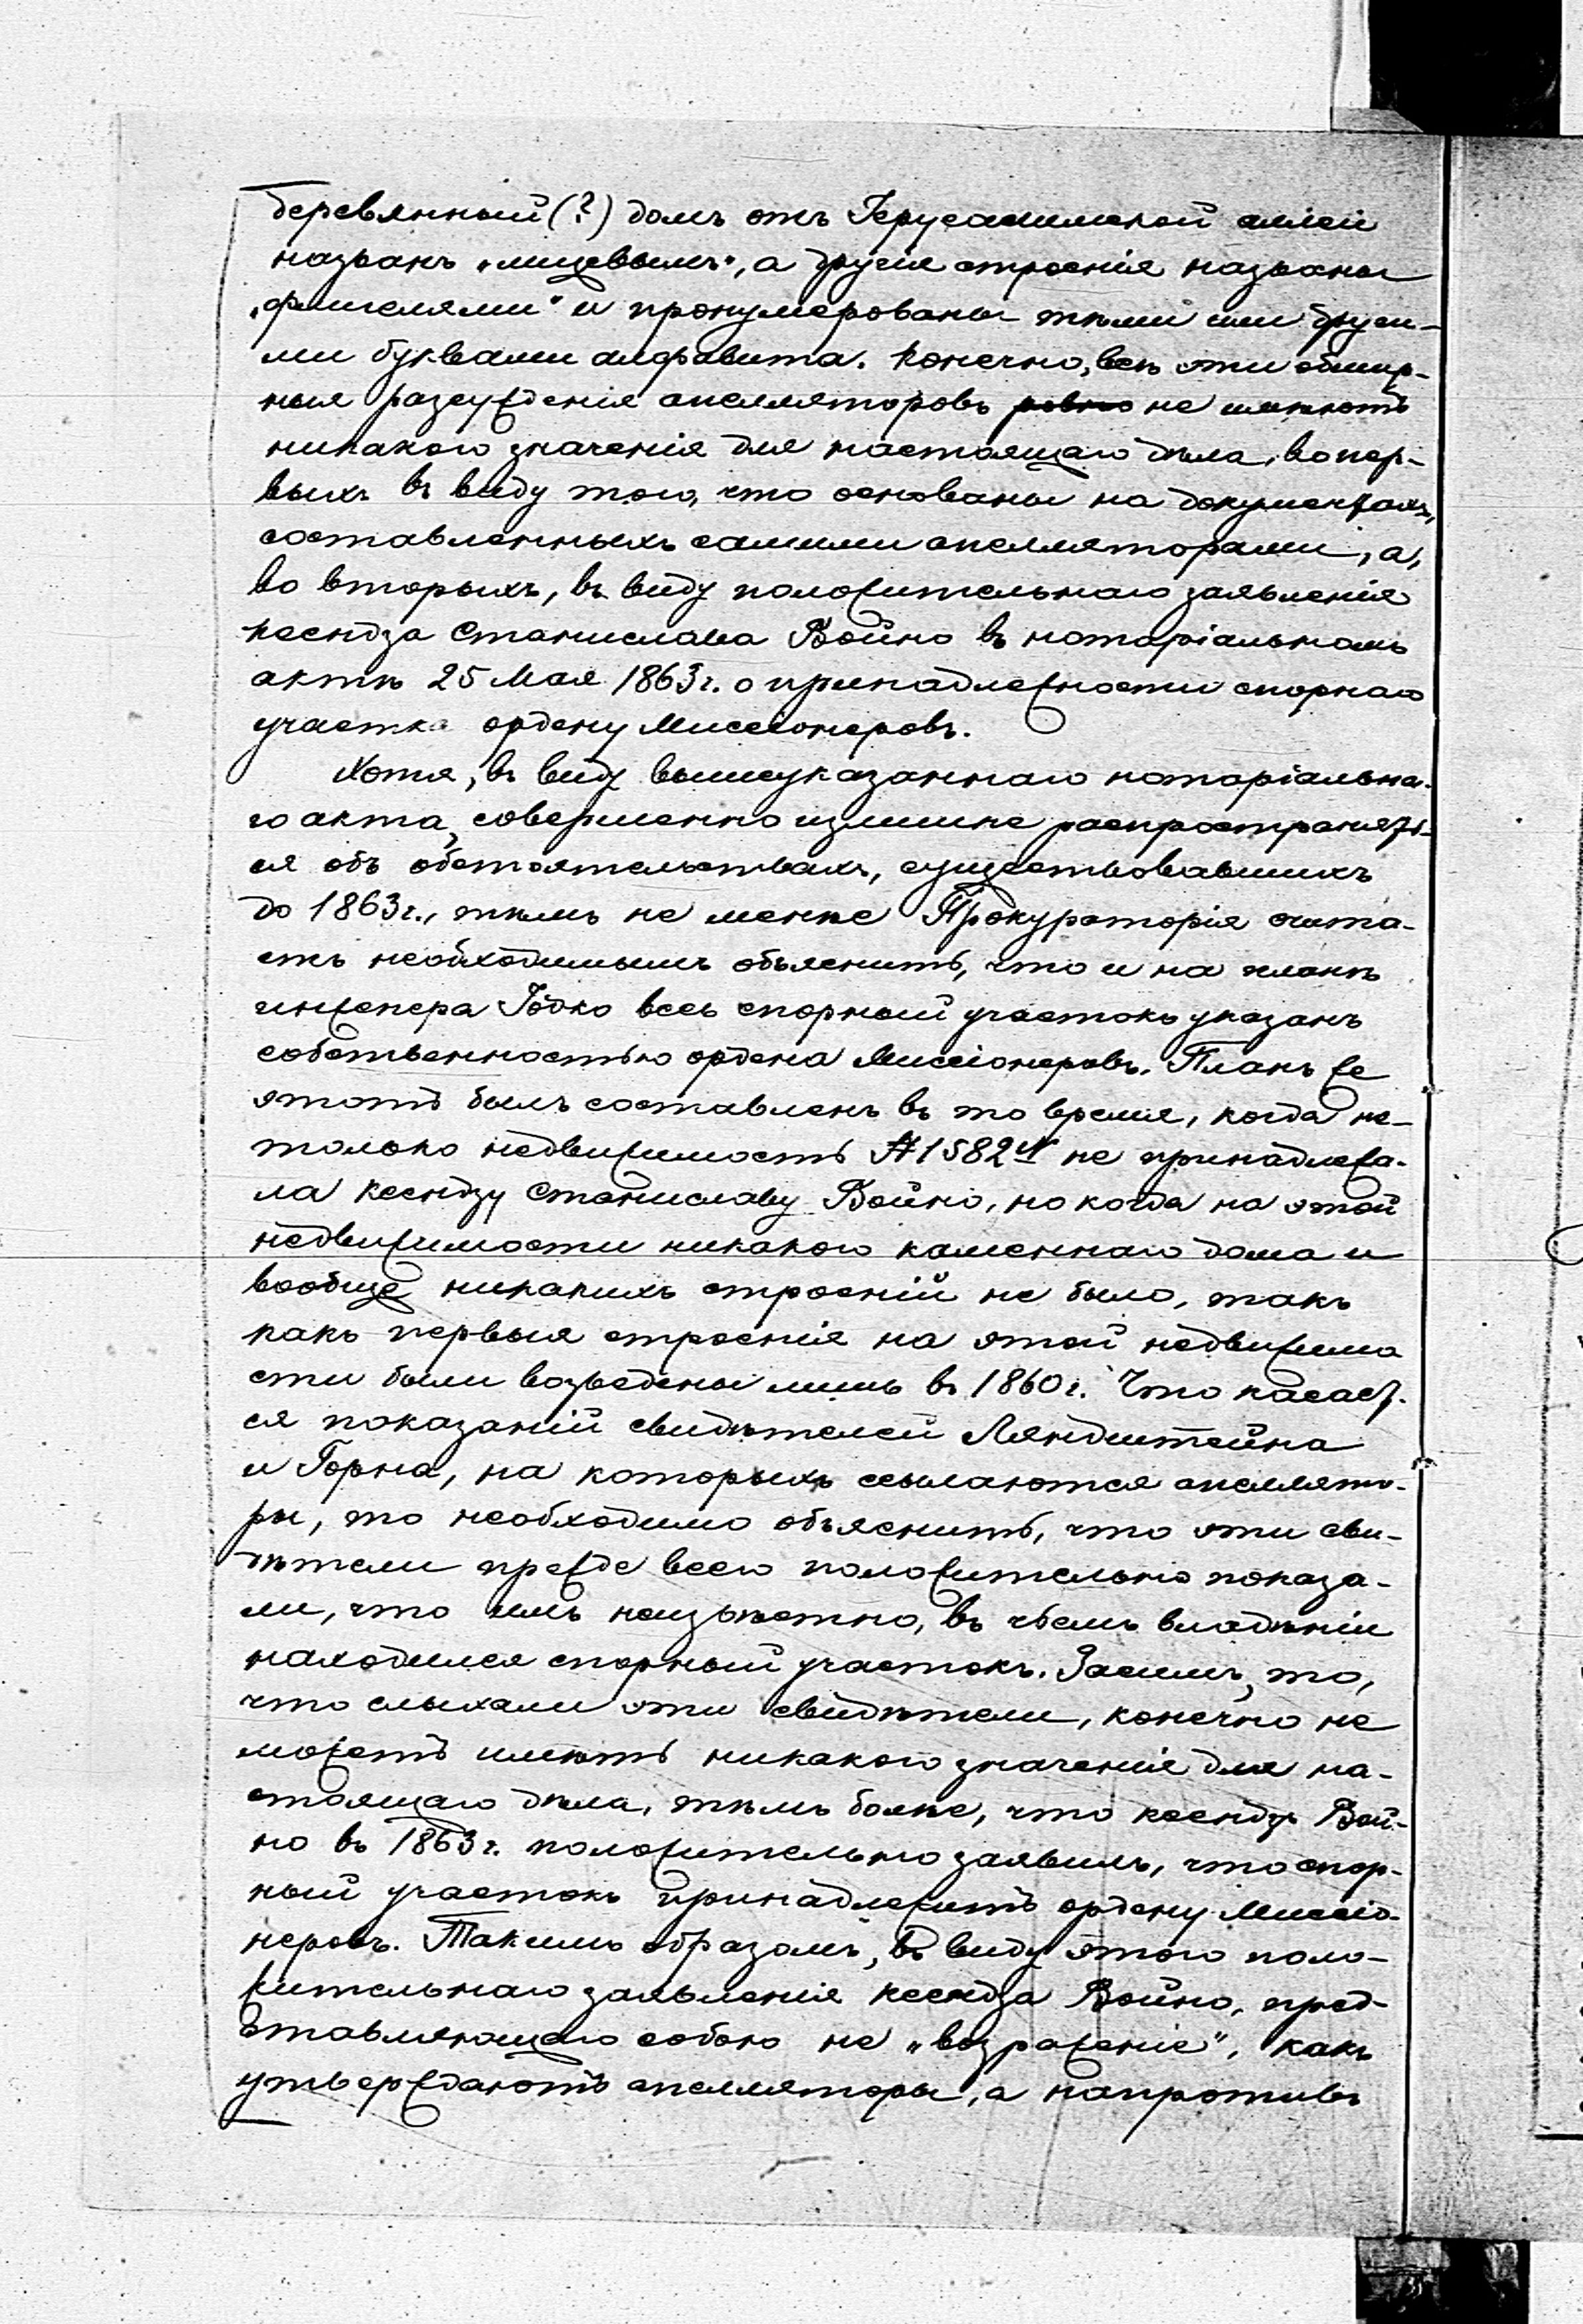 деревянный (?) домъ отъ Іерусалимской аллеи
названъ „лицевымъ", а другія строенія названы
„флигелями" и пронумерованы тѣми или други-
ми буквами алфавита. Конечно, всѣ эти обшир-
ныя разсужденія апелляторовъ ровно не имѣютъ
никакого значенія для настоящаго дѣла, вопер-
выхъ въ виду того, что основаны на документахъ,
составленныхъ самими апелляторами, а,
во вторыхъ, въ виду положительнаго заявленія
ксендза Станислава Войно въ нотаріальномъ
актѣ 25 Мая 1863 г. о принадлежности спорнаго
участка ордену Миссіонеровъ.
Хотя, въ виду вышеуказаннаго нотаріальна-
го акта, совершенно излишне распространять-
ся объ обстоятельствахъ, существовавшихъ
до 1863 г., тѣмъ не менѣе Прокураторія счита-
етъ необходимымъ объяснить, что и на планѣ
инженера Годко весь спорный участокъ указанъ
собственностью ордена Миссіонеровъ. Планъ же
этотъ былъ составленъ въ то время, когда не-
только недвижимость № 1582 не принадлежа-
ла ксендзу Станиславу Войно, но когда на этой
недвижимости никакого каменнаго дома и
вообще никакихъ строеній не было, такъ
какъ первыя строенія на этой недвижимо
сти были возведены лишь въ 1860 г. Что касает-
ся показаній свидѣтелей Ляндштейна
и Горна, на которыхъ ссылаются апеллято-
ры, то необходимо объяснить, что эти сви-
дѣтели прежде всего положительно показа-
ли, что имъ неизвѣстно, въ чьемъ владѣніи
находился спорный участокъ. Засимъ, то,
что слыхали эти свидѣтели, конечно не
можетъ имѣть никакого значенія для на-
стоящаго дѣла, тѣмъ болѣе, что ксендзъ Вой-
но въ 1863 г. положительно заявилъ, что спор-
ный участокъ принадлежитъ ордену Миссіо-
неровъ. Такимъ образомъ, въ виду этого поло-
жительнаго заявленія ксендза Войно, пред-
ставляющаго собою не „возраженіе", какъ
утверждаютъ апелляторы, а напротивъ